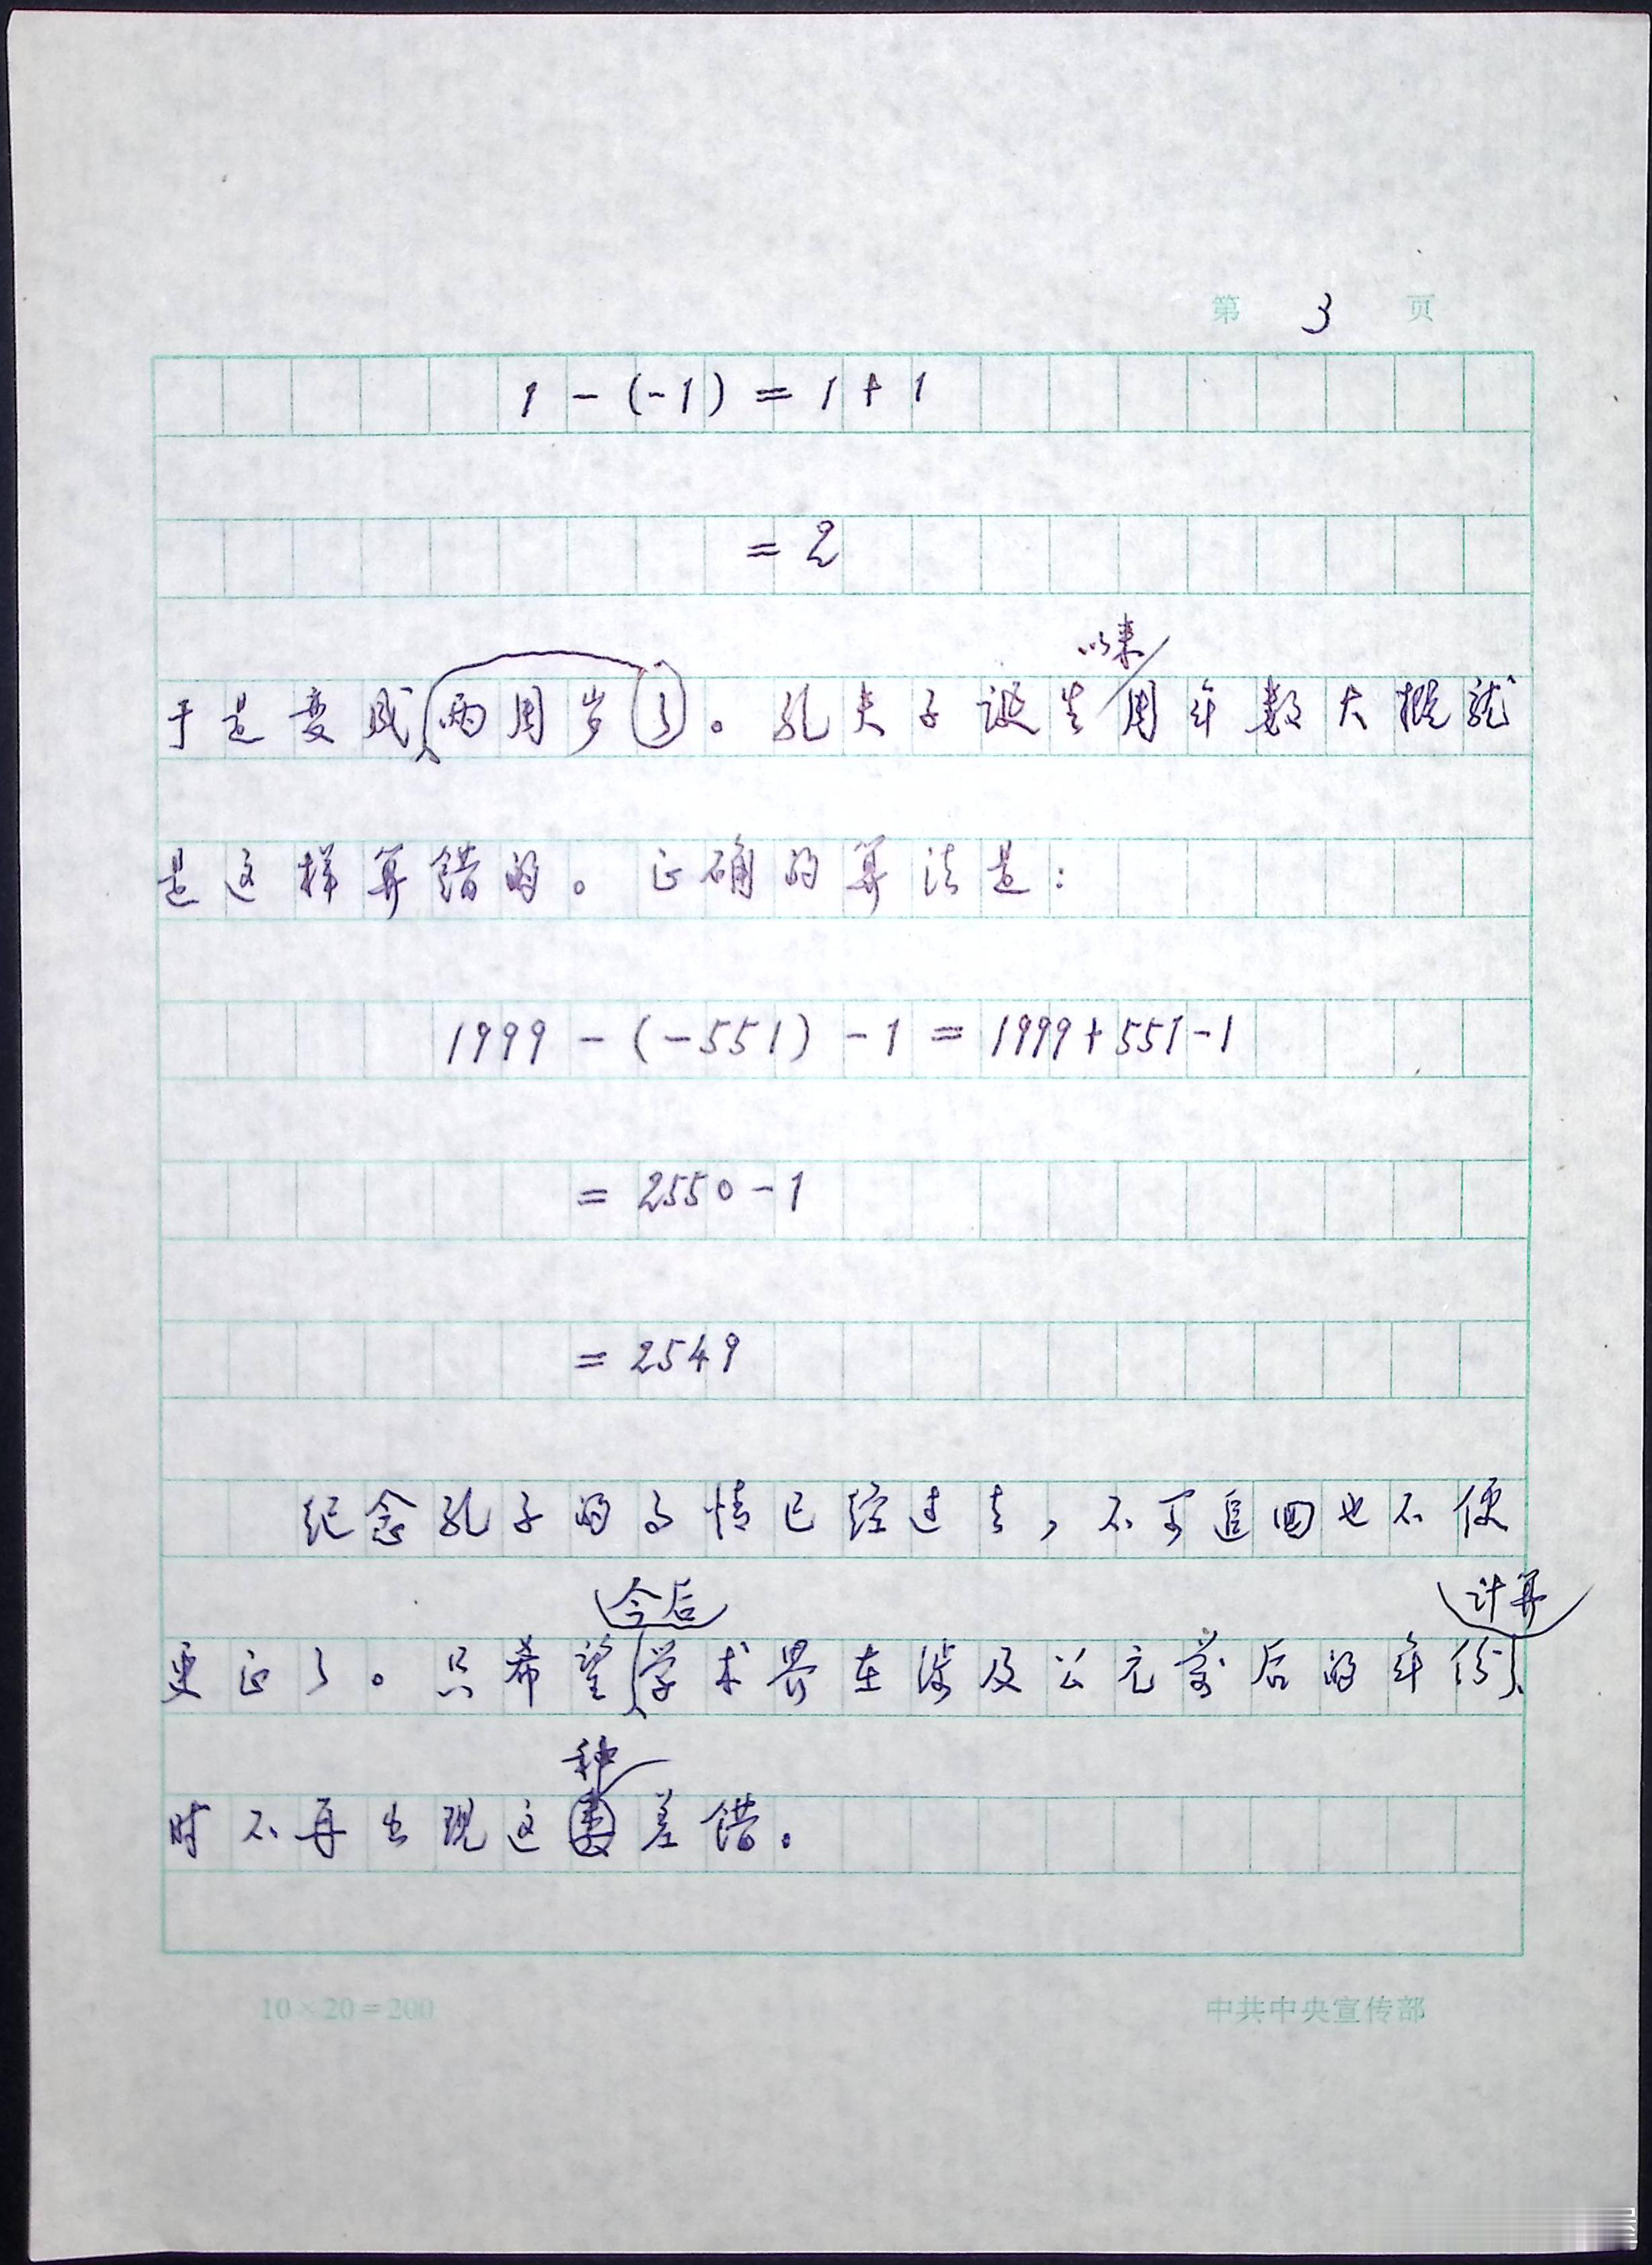 第 3 页
1 - (-1) = 1 + 1
= 2
以来
于是变成两周岁了。孔夫子诞生周年数大概就
是这样算错的。正确的算法是:
1999 - (-551) - 1 = 1999 + 551 - 1
= 2550 - 1
= 2549
纪念孔子的事情已经过去,不可追回也不便
今后 计算
更正了。只希望学术界在涉及公元前后的年份
种
时不再出现这类差错。
10×20=200 中共中央宣传部